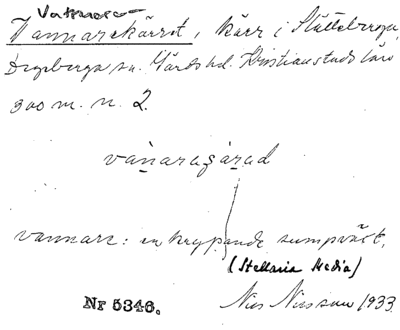 Vattnare
Vannarekärret, kärr i Slätteberga,
Degeberga sn. Gärds hd. Kristianstads län
300 m. n. 2.
vanaragärad
vannare: en krypande sumpväxt.
(Stellaria Media)
Nr 5346. Nils Nilsson 1933.